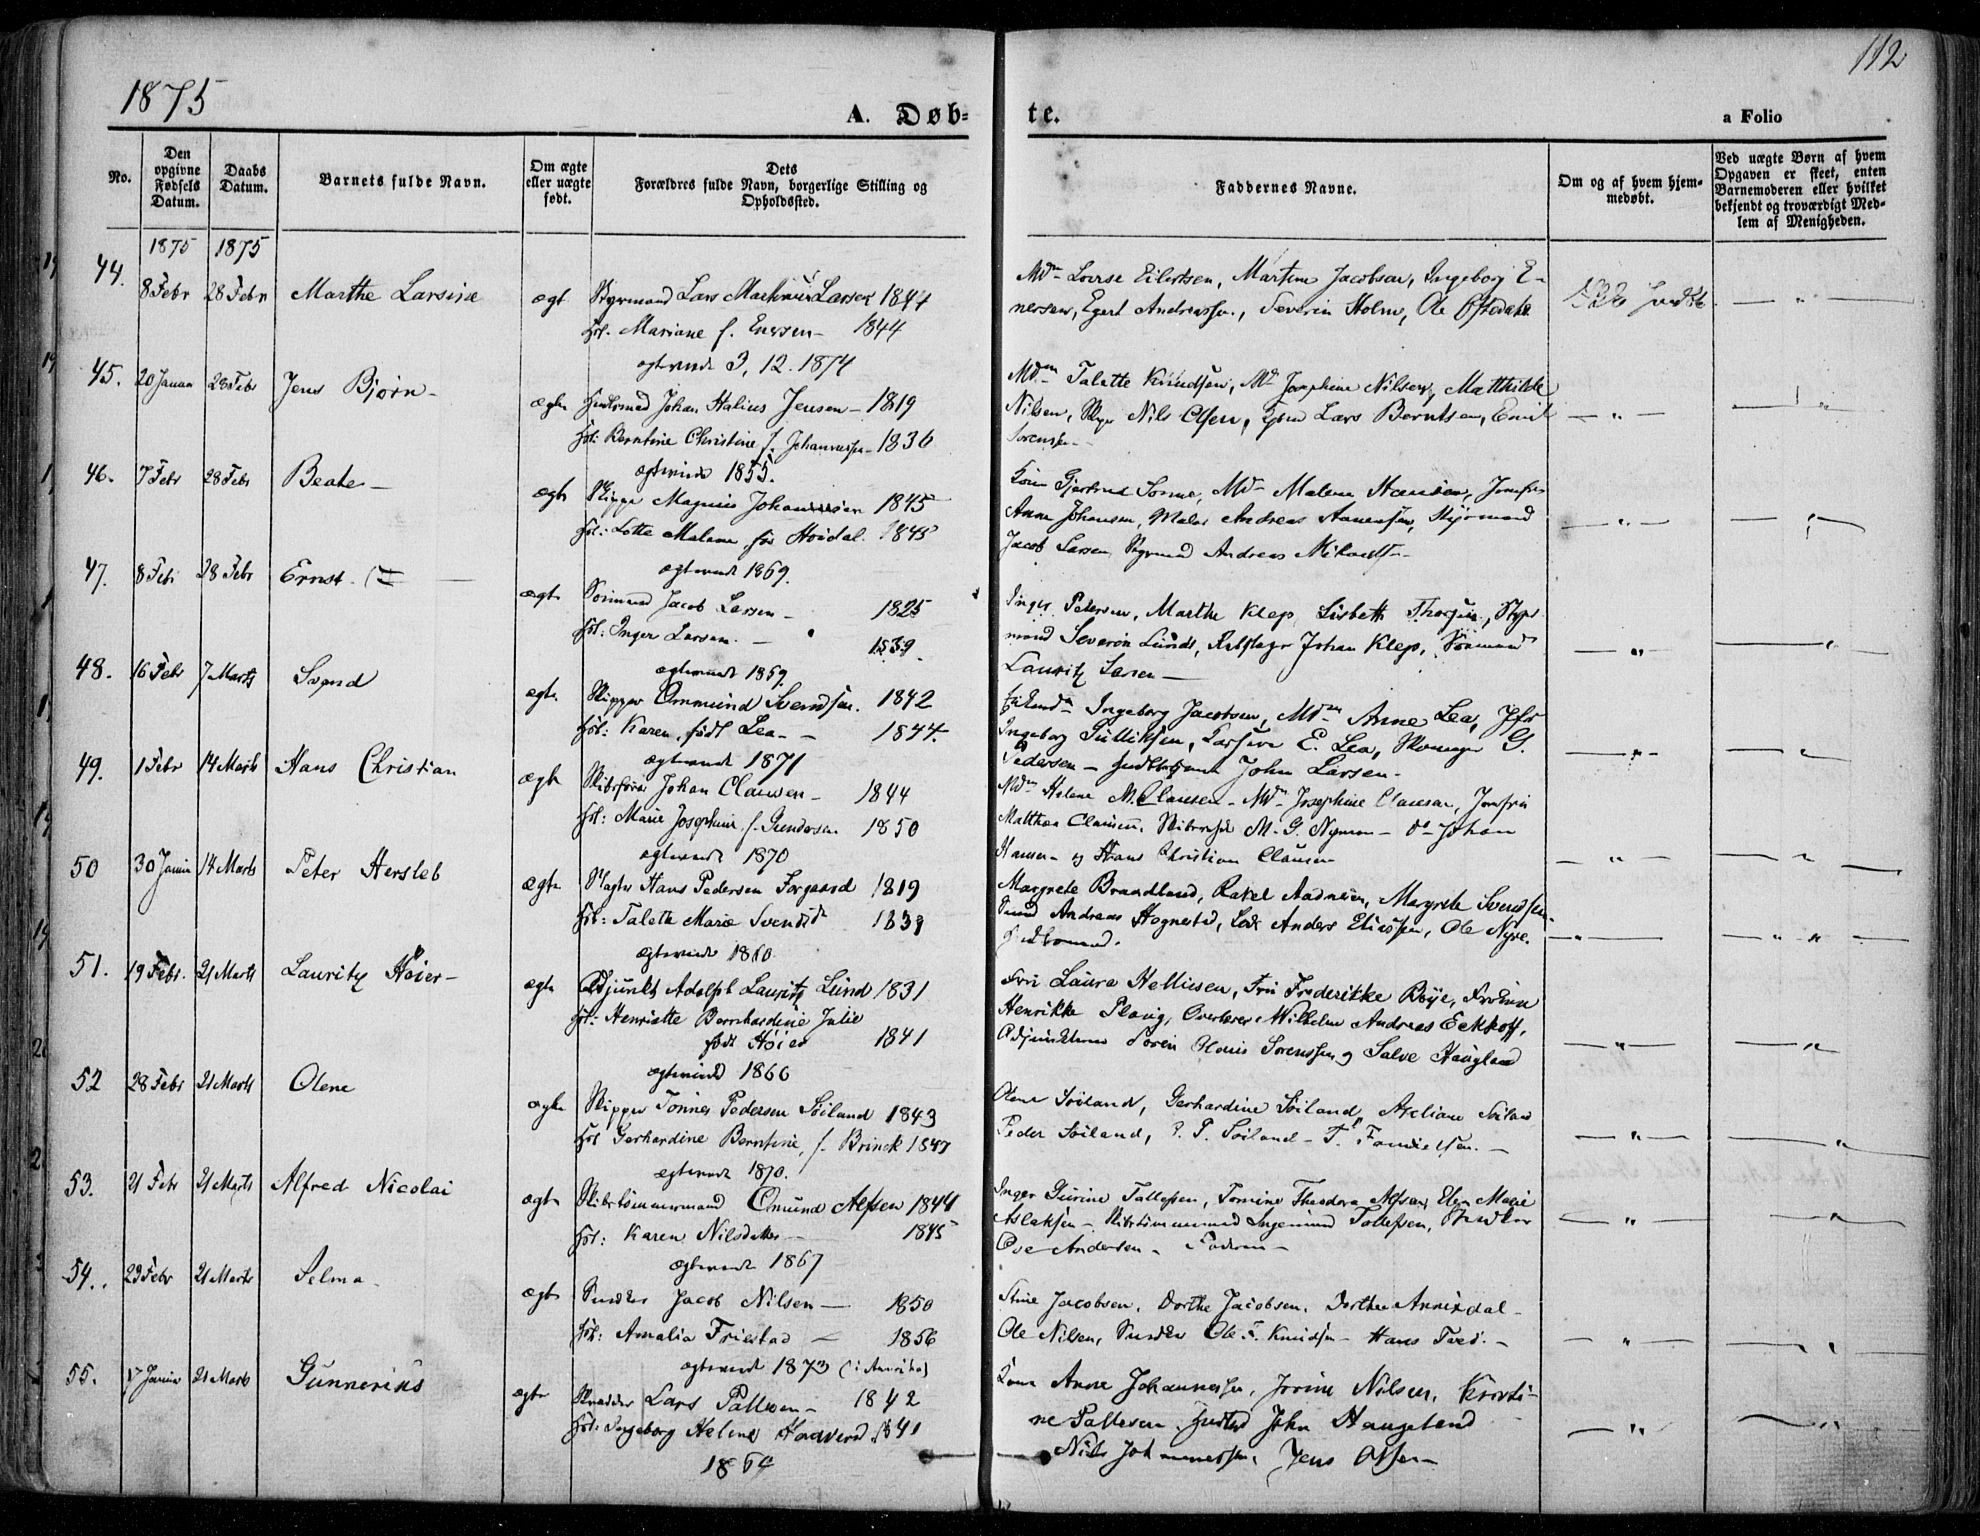 1875
112
A. Døb=
te.
a Folio
No.
Den opgivne Fødsels Datum.
Daabs Datum.
Barnets fulde Navn.
Om ægte eller uægte født.
Dets Forældres fulde Navn, borgerlige Stilling og Opholdssted.
Faddernes Navne.
Om og af hvem hjem-medøbt.
Ved uægte Børn af hvem Opgaven er skeet, enten Barnemoderen eller hvilket bekjendt og troværdigt Med-lem af Menigheden.
1875 1875
44. 8 Febr 28 Febr Marthe Larsine ægt Styrmand Lars Martinius Larsen 1844
Hst. Mariane f. Enersen - 1844
Eilertsen, Martine Jacobsen, Ingeborg E-
nersen, Egert Andreassen, Severin Holm, Ole
45. 20 Januar 28 Febr Jens Bjørn - ægte Johan Stalius Jensen - 1819
ægteviede 3, 12. 1874
Hst: Berntine Christine f. Johannessen - 1836
ægteviede 1855.
Mdm Talette Knudsen, Md Josephine Nilsen, Matthilde
Nilsen, Nils Olsen, Lars Berntsen, Emil
Sørensen -
46. 7 Febr 28 Febr Beate - ægte Skipper Magnus Johannesen 1845
Hst: Lotte Malene før Høidal. 1845
ægteviede 1869.
Kone Gjertrud Sonne, Md Malene Hansen, Jomfru
Anne Johansen, Maler Andreas Aanensen, Styrmand
Jacob Larsen, Styrmand Andreas
47. 8 Feb 28 Febr Ernst. ægte Sømand Jacob Larsen - 1825
Hst: Inger Larsen. - 1839.
ægteviede 1859.
Inger Petersen, Marthe Klep, Lisbeth Styr
mand Severin Lunde, Johan Klep, Sømand
Lauritz Larsen -
48. 16 Febr 7 Marts Svend ægte. Skipper Ommund Svendsen. 1842
Hst: Karen, født Lea - 1844.
ægteviede 1871
Ingeborg Jacobsen, Mdm Anne Lea, Jfr
Ingeborg Tulliksen, E. Lea, Skomager G.
Pedersen - John Larsen -
49. 1 Febr 14 Marts Hans Christian ægte Skibsfører Johan Clausen - 1844
Hst: Marie Josephine f. Gundersen 1850
ægteviede 1870
Mdm Helene M. Clausen - Mdm Josephine Clausen, Jomfru
Matthea Clausen, Skibsfører M. G. Nyman - do Johan
Hansen - og Hans Christian Clausen
50 30 Januar 14 Marts Peter Hersleb ægte Slagter Hans Pedersen Forgaard 1819
Hst: Talette Marie Svendsdt 1839
ægteviede 1860
Margrete Braadland, Rakel Aadnesen, Margrete Svendsen
Andreas Hognestad, Lods Anders Eliassen, Ole Nyre.
51. 19 Febr. 21 Marts Lauritz Høier - ægte Adjunkt Adolph Lauritz Lund 1831
Hst: Henriette Bernhardine Julie
født Høier 1841
ægteviede 1866
Fru Laura Helliesen, Fru Frederikke Bøye, Frøken
Henrikke Ploug, Overlærer Wilhelm Andreas Eckhoff,
Adjunkterne Søren Sørenssen og Salve Haugland
52 28 Febr 21 Marts Olene ægte Skipper Tønnes Pedersen Soiland 1843
Hst Gerhardine Berntine, f. Brinck 1847
ægteviede 1870.
Olene Soiland, Gerhardine Soiland, Axeliane Soiland
Peder Soiland, P. P. Soiland -
53. 21 Febr 21 Marts Alfred Nicolai ægte Skibstømmermand Omund Alfsen 1844
Hst: Karen Nilsdatter - 1845
ægteviede 1867
Inger Gurine Tollefsen, Tomine Theodora Alfsen, Elen Marie
Aslaksen - Skibstømmermand Ingemund Tollefsen, Snedker
Ove Andersen - Faderen -
54. 23 Febr 21 Marts Selma - ægte Snedker Jacob Nilsen - 1850
Hst: Amalia Friestad - 1856
ægteviede 1873 (i Amerika)
Stine Jacobsen, Dorthe Jacobsen, Dorthea Annindal -
Ole Nilsen, Snedker Ole T. Knudsen - Hans Tved. -
55. 17 Januar 21 Marts Gunnerius ægte Skrædder Lars Pallesen - 1842
Hst: Ingeborg Helene 1841
1864
Kone Anne Johannessen, Jorine Nilsen, Kristi-
ne Pallesen, John Haugland
Nils Johannessen, Jens Olsen -